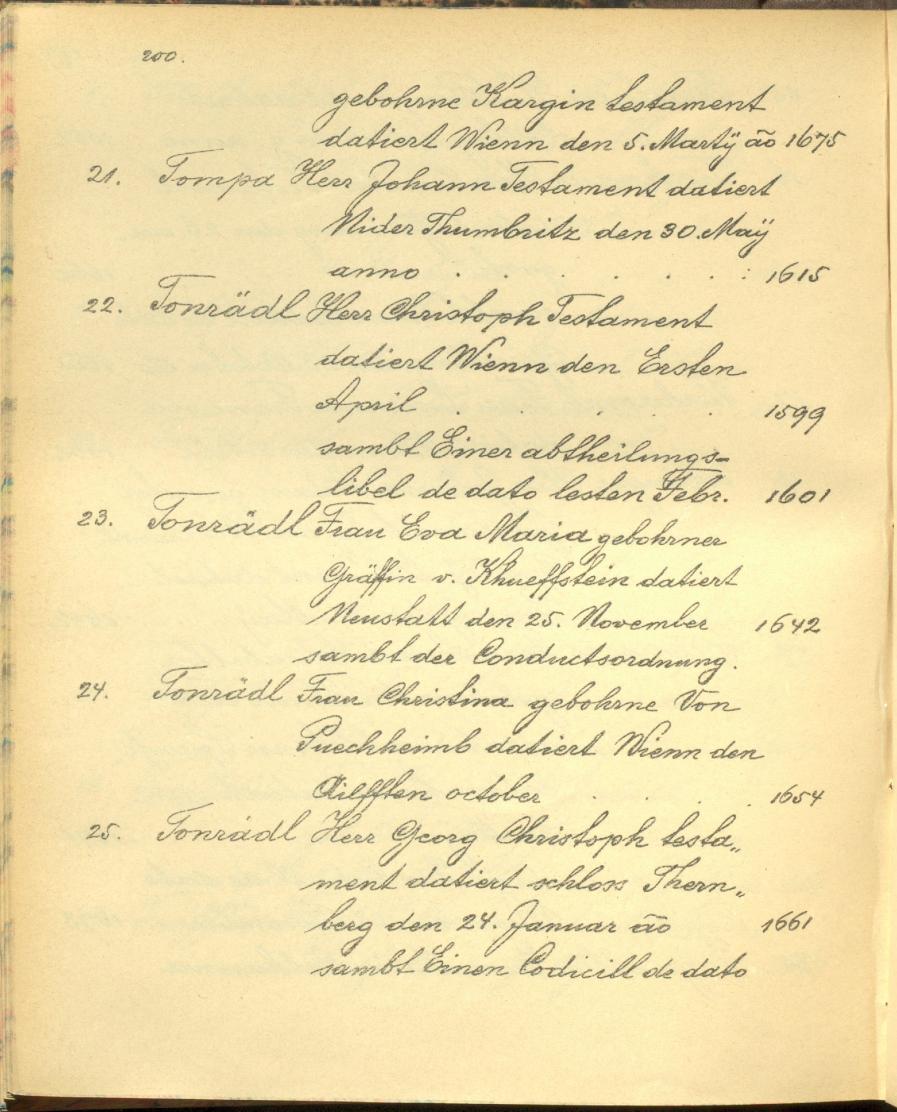 200.
gebohrne Kargin testament
datiert Wienn den 5. Martÿ ão 1675
21. Tompa Herr Johann Testament datiert
Nider Thumbritz den 30. Maÿ
anno . . . . . . : 1615
22. Tonrädl Herr Christoph Testament
datiert Wienn den Ersten
April . . . . 1599
sambt Einer abtheilungs=
libel de dato lesten Febr. 1601
23. Tonrädl Frau Eva Maria gebohrner
Gräffin v. Khueffstein datiert
Neustatt den 25. November 1642
sambt der Conductsordnung.
24. Tonrädl Frau Christina gebohrne Von
Puechheimb datiert Wienn den
Ailfften october . . . 1654
25. Tonrädl Herr Georg Christoph testa„
ment datiert schloss Thern„
berg den 24. Januar ão 1661
sambt Einen Codicill de dato